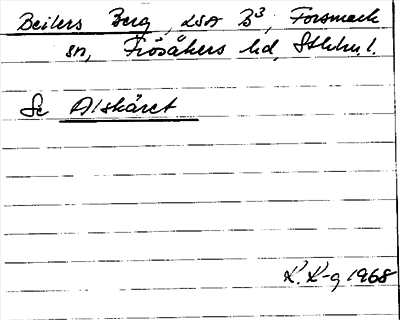 Beilers Berg, LSA B³, Forsmark
sn, Frösåkers hd, Sthlm. l.
Se Alskäret
K. K-g 1968